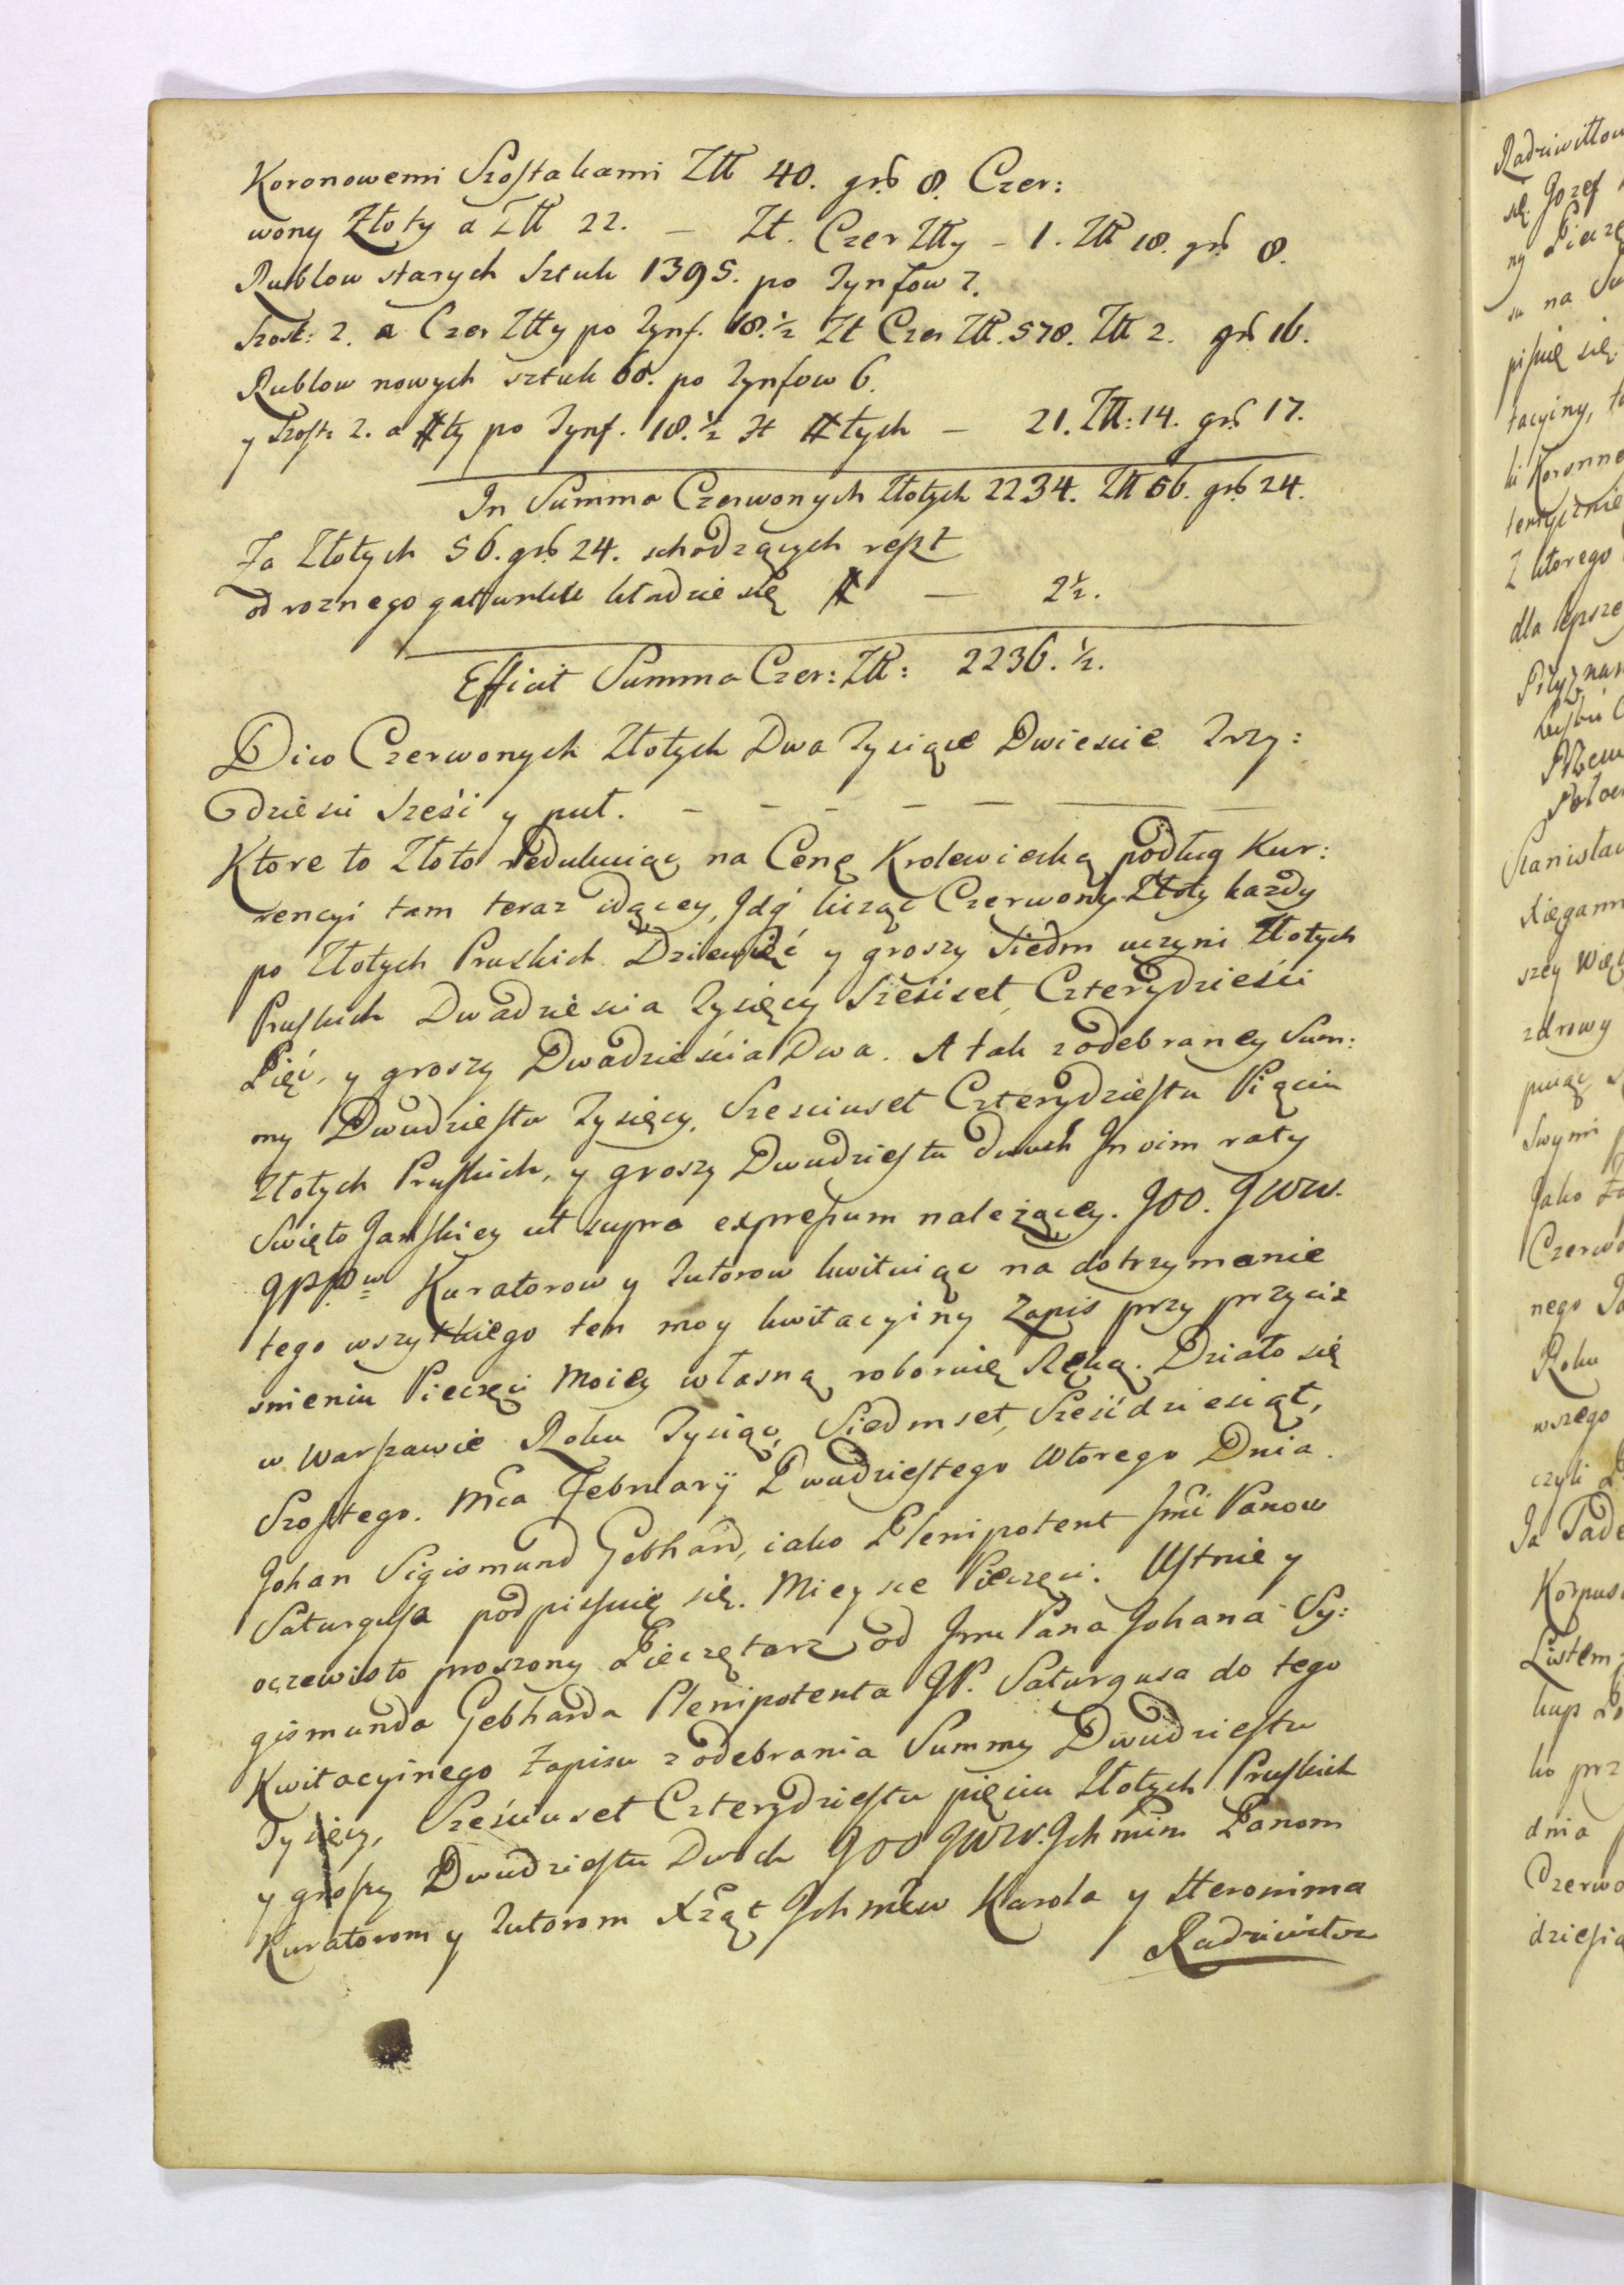 Koronowemi Szostakami Ztt 40. gr. 8. Czer:
wony Złoty a Ztt 22. — Zt. Czer Ztty – 1. Ztt 18. gr. 8.
Rublow starych Sztuk 1395. po Tynfow 7.
Szost: 2. a Czer Ztty po Tynf. 18.½ Zt Czer Ztt. 578. Ztt 2. gr 16.
Rublow nowych sztuk 60. po Tynfow 6.
y Szost: 2. a #ty po Tynf. 18.½ Zt #tych — 21. Ztt: 14. gr. 17.
In Summa Czerwonych Złotych 2234. Ztt 56. gr. 24.
Za Złotych 56. gr. 24. schodzących reszt
od roznego gattunku kładzie się # — 2½.
Efficit Summa Czer: Ztt: 2236.½.
Dico Czerwonych Złotych Dwa Tysiące Dwiescie Trzy:
dziesci Sześć y puł. – – – – – — —
Ktore to Złoto redukuiąc na Cenę Krolewiecką podług Kur:
rencyi tam teraz idącey, Jdq licząc Czerwony Złoty każdy
po Złotych Pruskich Dziewięć y groszy Siedm uczyni Złotych
Pruskich Dwadziescia Tysięcy Sześćset Czterydzieści
Pięć, y groszy Dwadzieścia Dwa. A tak z odebraney Sum:
my Dwudziestu Tysięcy, Szesciuset Czterydziestu Pięciu
Złotych Pruskich, y groszy Dwudziestu dwuch In vim raty
Swięto Janskiey ut supra expressum należącey. JOO. JWW.
JPPow Kuratorow y Tutorow kwituiąc na dotrzymanie
tego wszytkiego ten moy kwitacyiny Zapis przy przycis
snieniu Pieczęci Moiey własną roboruię Ręką. Działo się
w Warszawie Roku Tysiąc, Siedmset, Sześćdziesiąt,
Szostego. Mca Februarÿ Dwudziestego Wtorego Dnia.
Johan Sigismund Gebhard, iako Plenipotent Jmci Panow
Saturgusa podpisuię się. Mieysce Pieczęci. Ustnie y
oczewisto proszony Pieczętarz od Jmci Pana Johana Sy:
gismunda Gebharda Plenipotenta JP. Saturgusa do tego
Kwitacyinego Zapisu z odebrania Summy Dwudziestu
Tysięcy, Sześciuset Czterydziestu pięciu Złotych Pruskich
y groszy Dwudziestu Dwoch JOO JWW. Ichmm Panom
Kuratorom y Tutorom Xżąt Ichmćiow Karola y Heronima
Radziwiłow
Radziwiłłow
się. Jozef
ny Piecz
su na Su
pisuię się
tacyiny,
ki Koronne
tentycznie
Z ktorego
dla lepsze
Stanisław
szey Więk
zdrowy
Swymi
Jako
Czerwo
nego
Roku
wszego
czyli
Ja Tade
Korpus
Listem
kup
ko prz
dnia
Czerwo
dziesią